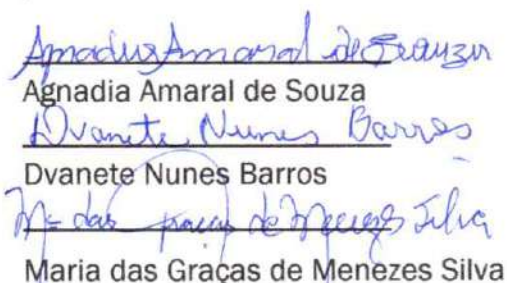 Agnadia Amaral de Souza
Agnadia Amaral de Souza
Dvanete Nunes Barros
Dvanete Nunes Barros
Mª das Graças de Menezes Silva
Maria das Graças de Menezes Silva